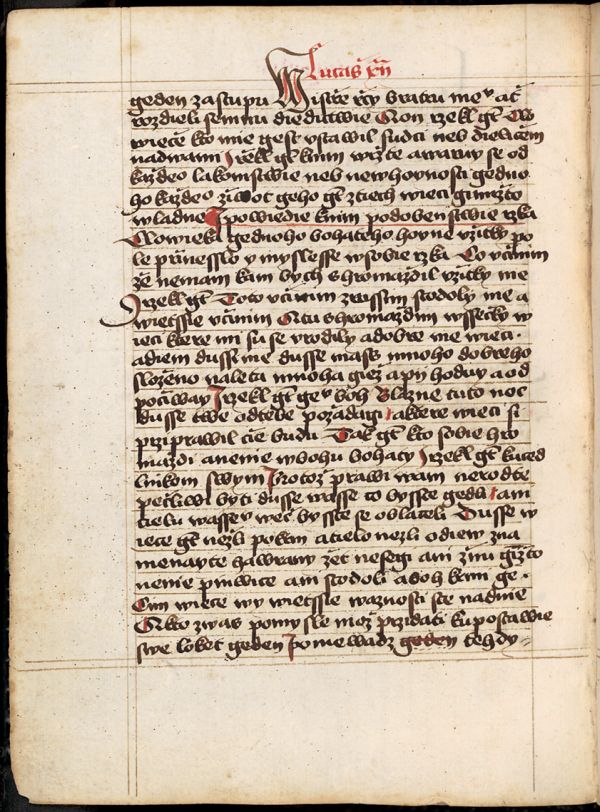 Lucaš xii
geden zastupu Mistrze rcy bratru memu at
rozdieli semnu diedictwie A on rzekl gt Clo
wiecze kto mie gest vstawil sudci neb dielicem
nadwami J rzekl gt knim wizte a warujte se od
kazdeo lakomstwie neb ne w hoynosti gedno
ho kazdeo ziwot geho gt ztiech wieci gimizto
wladne J powiedie knim podobenstwie rzka
Clowieka gednoho bohateho hoyne vzitky po
le przinesslo y myslesse wsobie rzka Co vcinim
ze nemam kam bych shromazdil vzitky me
J rzekl gt Toto vcinim zrussim stodoly me a
wietssie vcinim A tu shromazdim wssecky w
ieci ktere mi su se vrodily a dobre me wieci
a diem dussi me dusse mass mnoho dobreho
slozeno na leta mnoha giez a pij hoduy a od
pocziway J rzekl gt gemu boh Blazne tuto noc
dusse twe od tebe pozadagi a ktere wieci si
prziprawil czie budu Tak gt kto sobie hro
mazdi a nenie w bohu bohaty J rzekl gt k uczed
lnikom swym Protoz prawi wam nerodte
pecliwi byti dusse wasse co byste gedli ani
tielu wassemu wec byste se oblacili Dusse w
iece gt nezli pokrm a tielo nezli odiew zna
menayte hawrany zet nesegi ani znu gizto
nenie piwnice ani stodoli a boh krmi ge
Cim wiece wy wietssie waznosti ste nad nie
A kto z was pomysle moz przidati ku postawie
swe loket geden Poniewadz geden tehdy